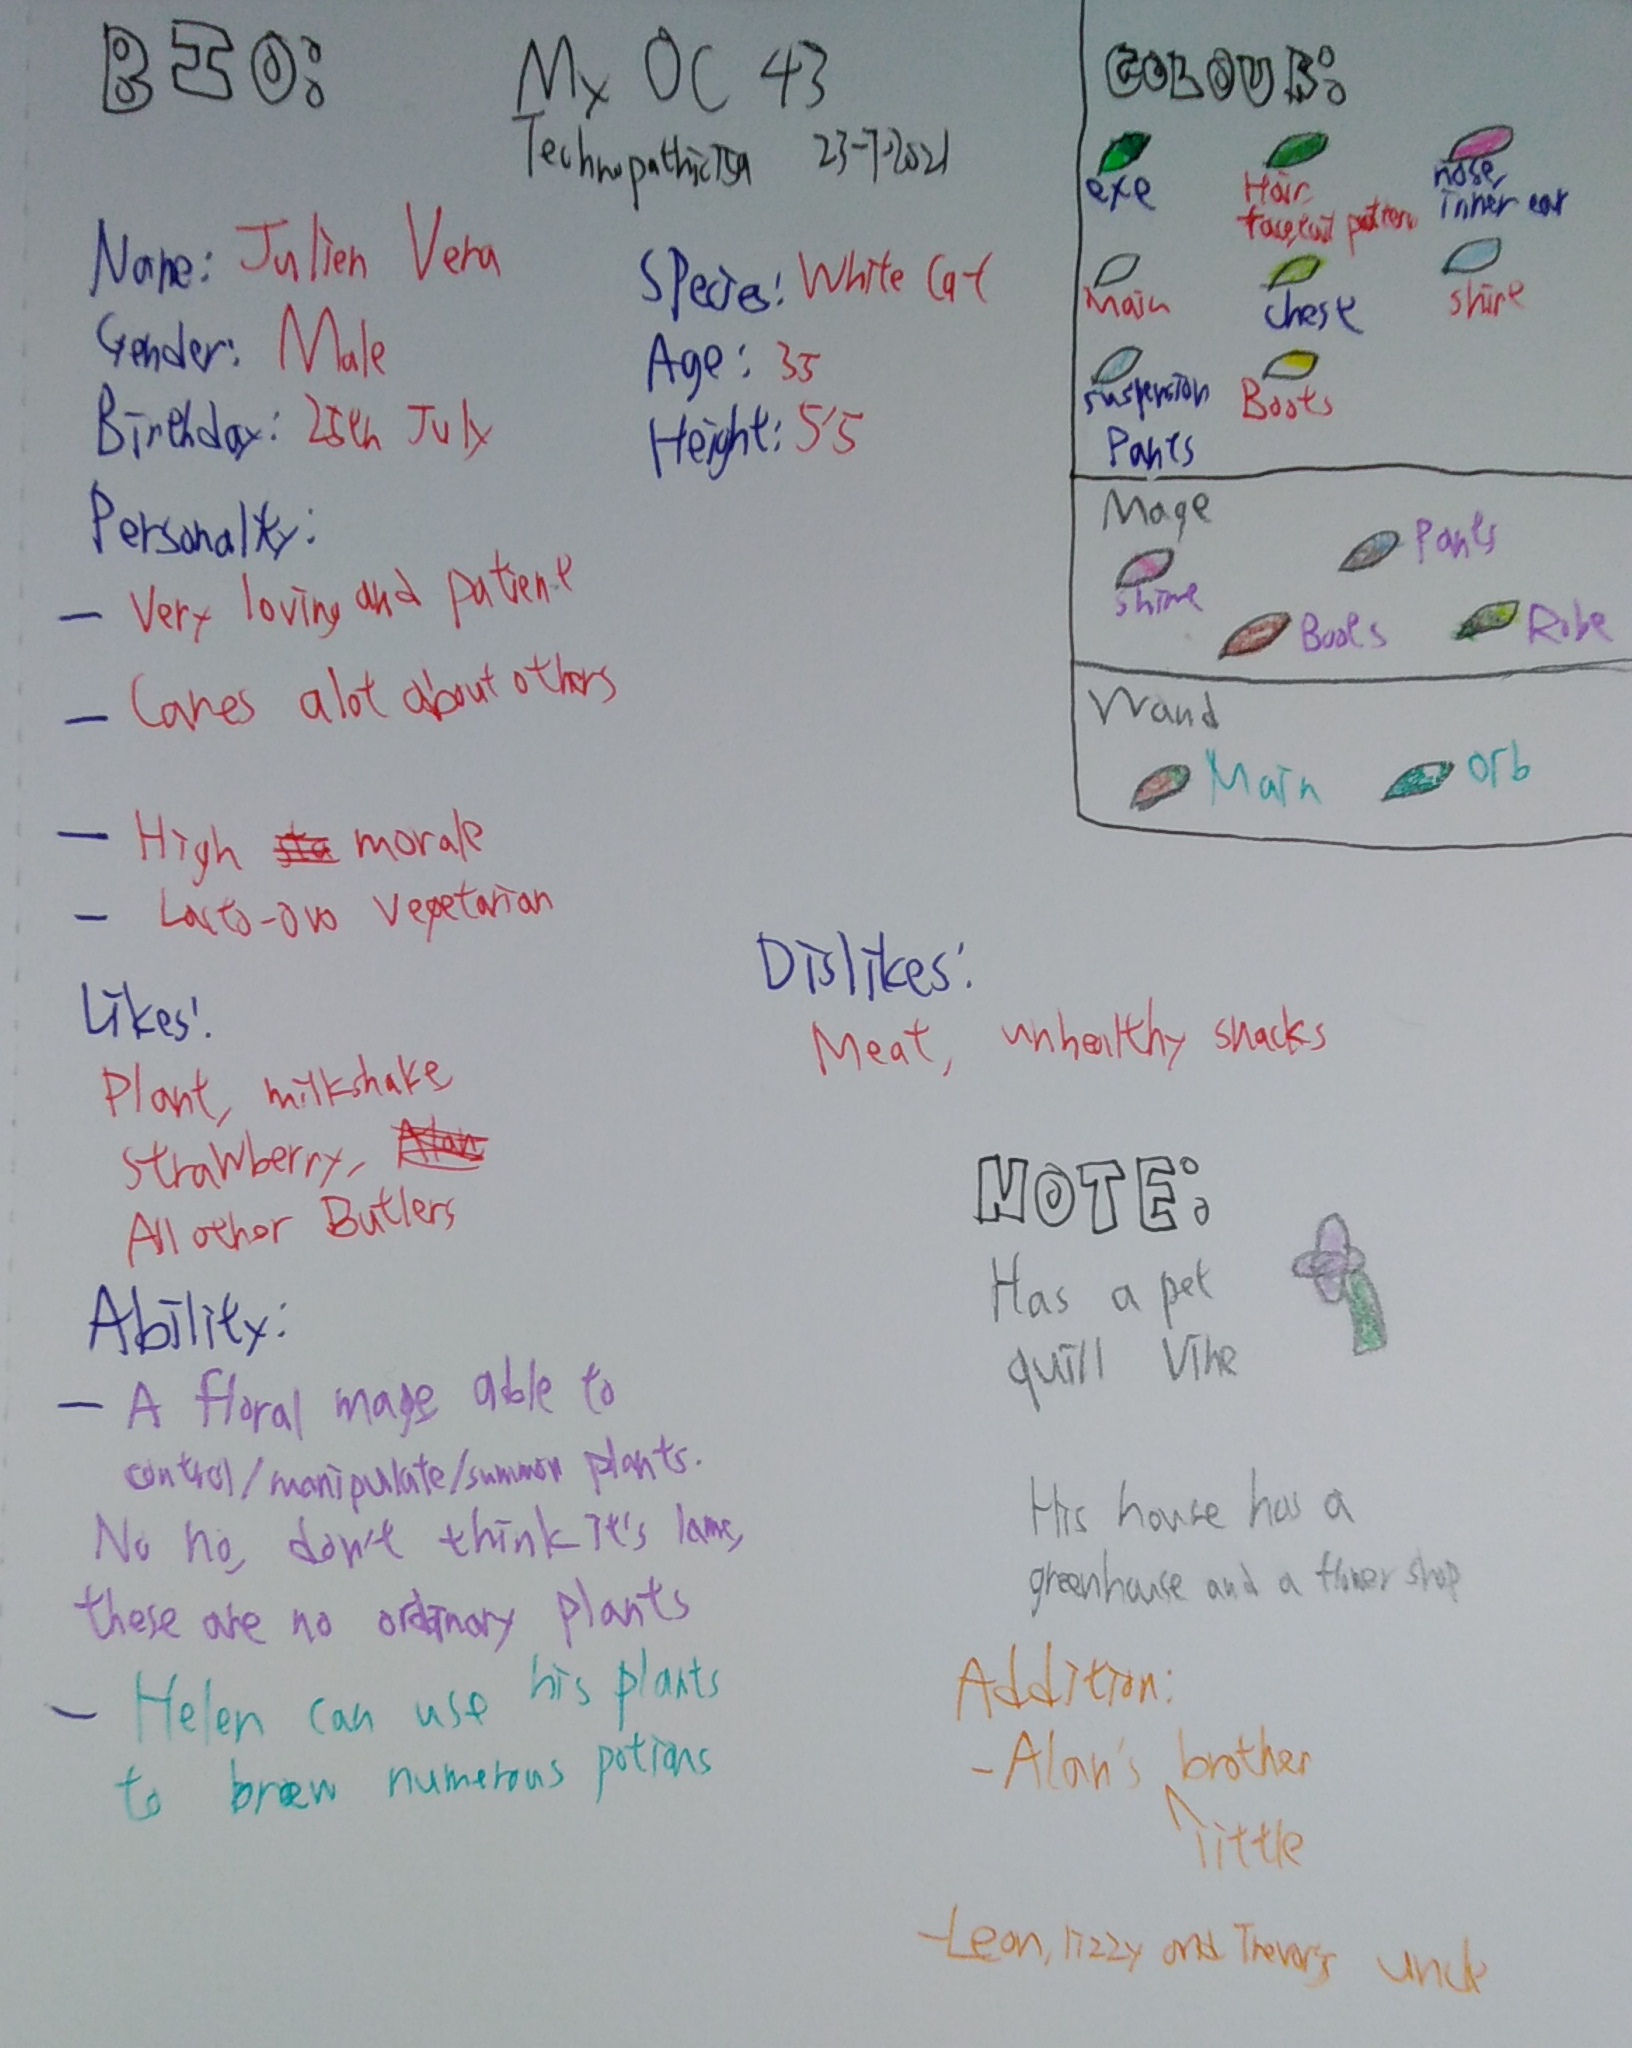 BIO:
My OC 43
Technopathicisa 23-7-2021
Name: Julien Vera
Species: White Cat
Gender: Male
Age: 35
Birthday: 25th July
Height: 5'5
Personalty:
- Very loving and patient
- Cares alot about others
- High morale
- Lacto-ovo vegetarian
Likes:
Plant, milkshake
strawberry, Alan
All other Butlers
Dislikes:
Meat, unhealthy snacks
Ability:
- A floral mage able to
control/manipulate/summon plants.
No no, don't think it's lame,
these are no ordinary plants
- Helen can use his plants
to brew numerous potions
COLOUR:
eye
Hair,
face, tail pattern
nose,
inner ear
Main
chest
shirt
suspension
Pants
Boots
Mage
shirt
Pants
Boots
Robe
Wand
Main
Orb
NOTE:
Has a pet
quill vine
His house has a
greenhouse and a flower shop
Addition:
- Alan's brother
little
- Leon, lizzy and Trevor's uncle